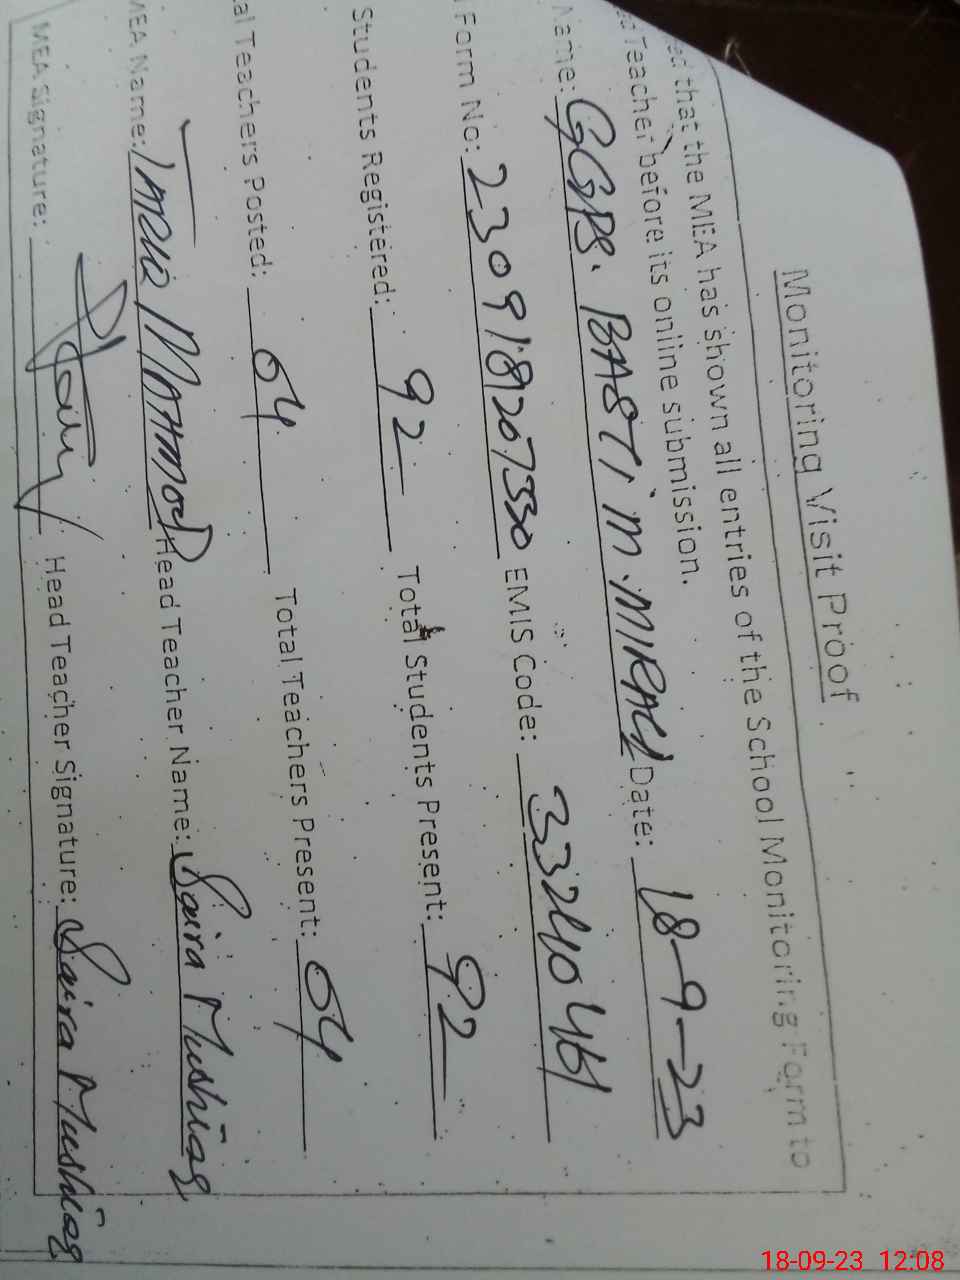 Monitoring Visit Proof
ed that the MEA has shown all entries of the School Monitoring Form to
d Teacher before its online submission.
Name: GGPS. BASTI M. MIRACH Date: 18-9-23
Form No: 230918207330 EMIS Code: 33240461
Students Registered: 92 Total Students Present: 92
al Teachers Posted: 04 Total Teachers Present: 04
MEA Name: MAHMOOD Head Teacher Name: Saira Mushtaq
MEA Signature: Head Teacher Signature: Saira Mushtaq
18-09-23 12:08